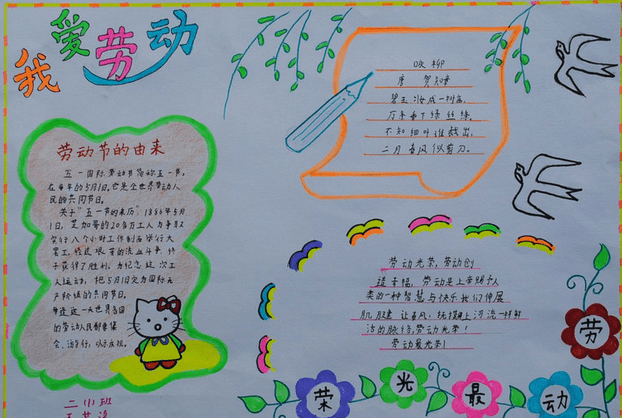 我爱劳动
劳动节的由来
五一国际劳动节简称五一节,
在每年的5月1日,它是全世界劳动人
民的共同节日。
关于"五一节的来历"1886年5月
1日,芝加哥的20多万工人为争取
实行八个小时工作制而举行大
罢工,经过艰苦的流血斗争,终
于获得了胜利。为纪念这次工
人运动,把5月1日定为国际无
产阶级的共同节日。
每逢这一天世界各国
的劳动人民都要集
会、游行,以示庆祝。
二(1)班
咏柳
唐 贺知章
碧玉妆成一树高,
万条垂下绿丝绦。
不知细叶谁裁出,
二月春风似剪刀。
劳动光荣,劳动创
造幸福,劳动是上帝赐予人
类的一种智慧与快乐我们伸展
肌肤,让春风,抚摸上河流一样鲜
活的脉络,劳动光荣!
劳动最光荣!
劳
动
最
光
荣